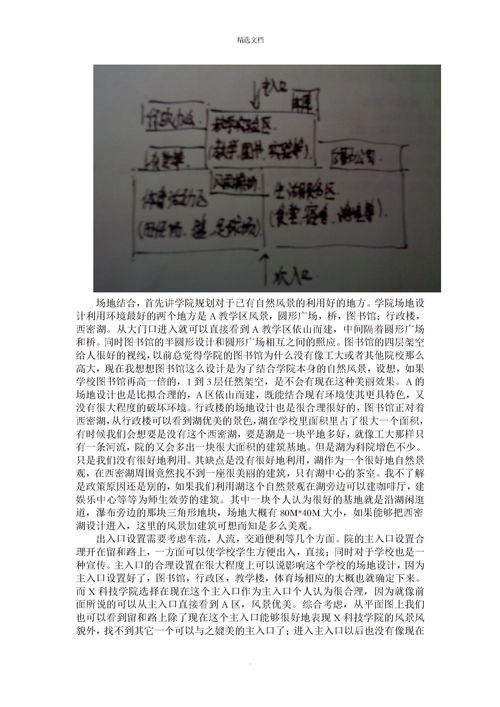 精选文档
主入口
教学实验区
(教学,图书,实验等)
体育活动区
生活服务区
次入口
场地结合，首先讲学院规划对于已有自然风景的利用好的地方。学院场地设
计利用环境最好的两个地方是A教学区风景，圆形广场，桥，图书馆；行政楼，
西密湖。从大门口进入就可以直接看到A教学区依山而建，中间隔着圆形广场
和桥。同时图书馆的半圆形设计和圆形广场相互之间的照应。图书馆的四层架空
给人很好的视线，以前总觉得学院的图书馆为什么没有像工大或者其他院校那么
高大，现在我想想图书馆这么设计是为了结合学院本身的自然风景，设想，如果
学校图书馆再高一倍的，1到3层任然架空，是不会有现在这种美丽效果。A的
场地设计也是比拟合理的，A区依山而建，既能结合现有环境使其更具特色，又
没有很大程度的破坏环境。行政楼的场地设计也是很合理很好的，图书馆正对着
西密湖，从行政楼可以看到湖优美的景色，湖在学校里面积里占了很大一个面积，
有时候我们会想要是没有这个西密湖，要是湖是一块平地多好，就像工大那样只
有一条河流，院的又会多出一块很大面积的建筑基地。但是湖为科院增色不少。
只是我们没有很好地利用。其缺点是没有很好地利用，湖作为一个很好地自然景
观，在西密湖周围竟然找不到一座很美丽的建筑，只有湖中心的茶室。我不了解
是政策原因还是别的，如果我们利用湖这个自然景观在湖旁边可以建咖啡厅，建
娱乐中心等等为师生效劳的建筑。其中一块个人认为很好的基地就是沿湖闲逛
道，瀑布旁边的那块三角形地块，场地大概有80M*40M大小，如果能够把西密
湖设计进入，这里的风景加建筑可想而知是多么美观。
出入口设置需要考虑车流，人流，交通便利等几个方面。院的主入口设置合
理开在留和路上，一方面可以使学校学生方便出入，直接；同时对于学校也是一
种宣传。主入口的合理设置在很大程度上可以说影响这个学校的场地设计，因为
主入口设置好了，图书馆，行政区，教学楼，体育场相应的大概也就确定下来。
而X科技学院选择在现在这个主入口作为主入口个人认为很合理，因为就像前
面所说的可以从主入口直接看到A区，风景优美。综合考虑，从平面图上我们
也可以看到留和路上除了现在这个主入口能够很好地表现X科技学院的风景风
貌外，找不到其它一个可以与之媲美的主入口了；进入主入口以后也没有像现在